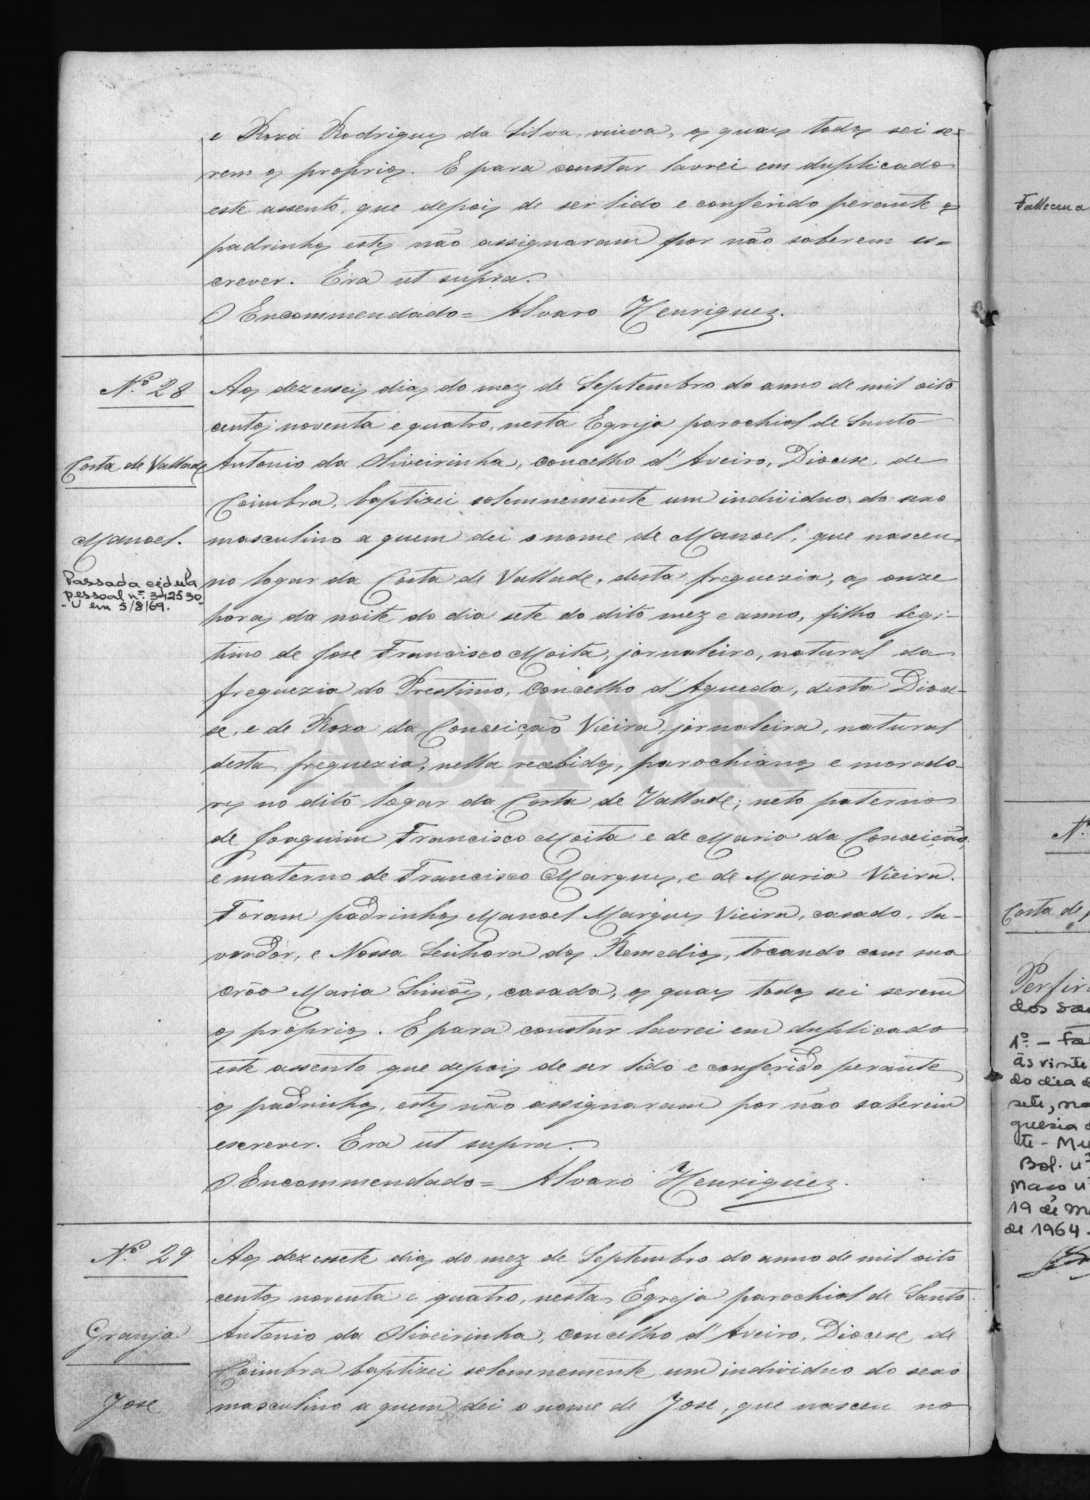 e Roza Rodrigues da Silva, viuva, os quaes todos sei se-
rem os proprios. E para constar lavrei em duplicado
este assento, que depois de ser lido e conferido perante os
padrinhos estes não assignaram por não saberem es-
crever. Era ut supra.
O Encommendado = Alvaro Henriques.
N.º 28
Costa de Vallade
Manoel.
Passada cédula
pessoal nº. 342530
em 5/8/69.
Aos dezesseis dias do mez de Septembro do anno de mil oito
centos noventa e quatro, nesta Egreja parochial de Santo
Antonio da Oliveirinha, concelho d'Aveiro, Diocese, de
Coimbra, baptizei solemnemente um individuo do sexo
masculino a quem dei o nome de Manoel, que nasceu
no logar da Costa de Vallade, desta freguezia, as onze
horas da noite do dia sete do dito mez e anno, filho legi-
timo de Jose Francisco Moita, jornaleiro, natural da
freguezia do Prestimo, Concelho d'Agueda, desta Dioce-
se, e de Roza da Conceição Vieira, jornaleira, natural
desta freguezia, nella recebidos, parochianos e morado-
res no dito logar da Costa de Vallade; neto paterno
de Joaquim Francisco Moita e de Maria da Conceição,
e materno de Francisco Marques, e de Maria Vieira.
Foram padrinhos Manoel Marques Vieira, casado, la-
vrador, e Nossa Senhora dos Remedios, tocando com sua
crôa Maria Simões, casada, os quaes todos sei serem
os proprios. E para constar lavrei em duplicado
este assento que depois de ser lido e conferido perante
os padrinhos, estes não assignaram por não saberem
escrever. Era ut supra.
O Encommendado = Alvaro Henriques.
N.º 29
Granja
Jose
Aos dezesete dias do mez de Septembro do anno de mil oito
centos noventa e quatro, nesta Egreja parochial de Santo
Antonio da Oliveirinha, concelho d'Aveiro, Diocese, de
Coimbra baptizei solemnemente um individuo do sexo
masculino a quem dei o nome de Jose, que nasceu no
ADAVR
Falleceu a
N.
Costa de
Perfir
dos Sa
1º. - Fa
às vinte
do dia d
sete, na
guesia
te - Mu
Bol. nº
Maço nº
19 de M
de 1964.